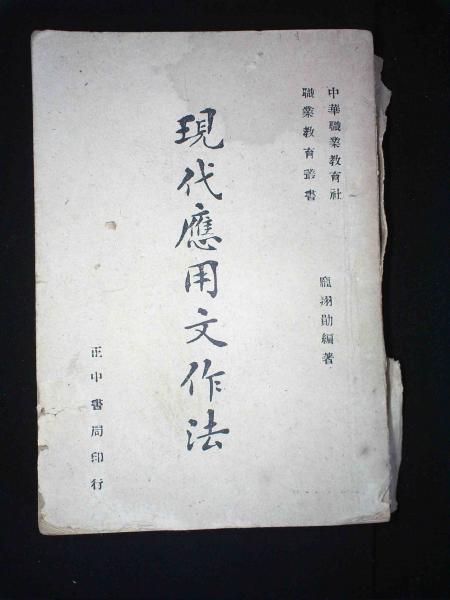 中華職業教育社
職業教育叢書
龐翔勛編著
現代應用文作法
正中書局印行